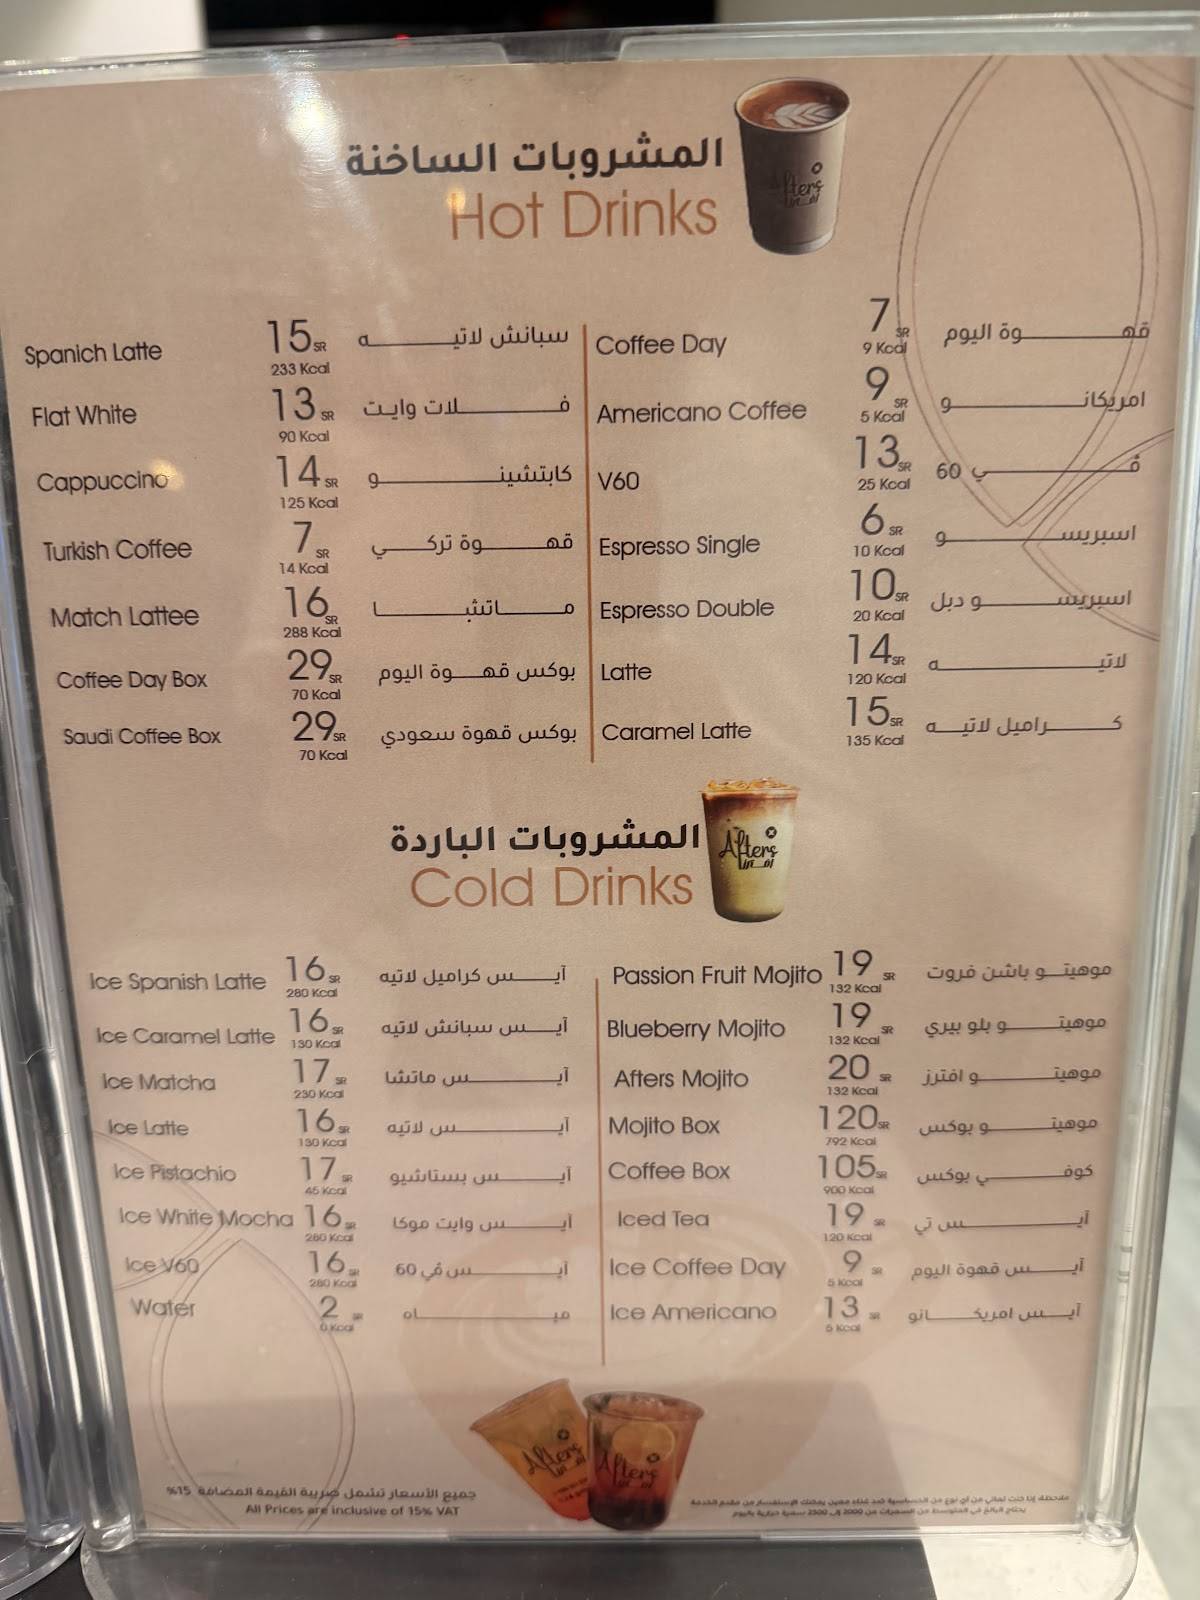 المشروبات الساخنة
Hot Drinks
Afters
Spanich Latte 15 SR 233 Kcal سبانش لاتيه
Flat White 13 SR 90 Kcal فلات وايت
Cappuccino 14 SR 125 Kcal كابتشينو
Turkish Coffee 7 SR 14 Kcal قهوة تركي
Match Lattee 16 SR 288 Kcal ماتشا
Coffee Day Box 29 SR 70 Kcal بوكس قهوة اليوم
Saudi Coffee Box 29 SR 70 Kcal بوكس قهوة سعودي
Coffee Day 7 SR 9 Kcal قهوة اليوم
Americano Coffee 9 SR 5 Kcal امريكانو
V60 13 SR 25 Kcal في 60
Espresso Single 6 SR 10 Kcal اسبريسو
Espresso Double 10 SR 20 Kcal اسبريسو دبل
Latte 14 SR 120 Kcal لاتيه
Caramel Latte 15 SR 135 Kcal كراميل لاتيه
المشروبات الباردة
Cold Drinks
Afters
Ice Spanish Latte 16 SR 280 Kcal آيس كراميل لاتيه
Ice Caramel Latte 16 SR 130 Kcal آيس سبانش لاتيه
Ice Matcha 17 SR 230 Kcal آيس ماتشا
Ice Latte 16 SR 130 Kcal آيس لاتيه
Ice Pistachio 17 SR 45 Kcal آيس بستاشيو
Ice White Mocha 16 SR 280 Kcal آيس وايت موكا
Ice V60 16 SR 280 Kcal آيس في 60
Water 2 SR 0 Kcal مياه
Passion Fruit Mojito 19 SR 132 Kcal موهيتو باشن فروت
Blueberry Mojito 19 SR 132 Kcal موهيتو بلو بيري
Afters Mojito 20 SR 132 Kcal موهيتو افترز
Mojito Box 120 SR 792 Kcal موهيتو بوكس
Coffee Box 105 SR 900 Kcal كوفي بوكس
Iced Tea 19 SR 120 Kcal آيس تي
Ice Coffee Day 9 SR 5 Kcal آيس قهوة اليوم
Ice Americano 13 SR 5 Kcal آيس امريكانو
Afters
Afters
جميع الأسعار تشمل ضريبة القيمة المضافة 15%
All Prices are inclusive of 15% VAT
ملاحظة: إذا كنت تعاني من أي نوع من الحساسية ضد غذاء معين يمكنك الإستفسار من مقدم الخدمة
يحتاج البالغ في المتوسط من السعرات من 2000 إلى 2500 سعرة حرارية باليوم